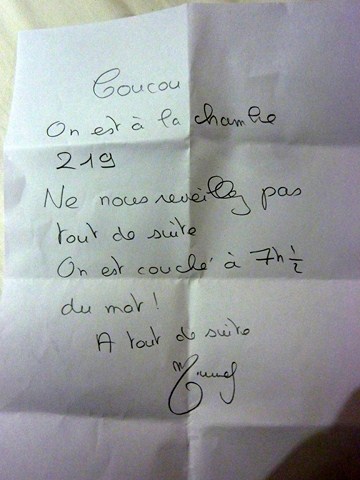 Coucou
On est à la chambre
219
Ne nous reveillez pas
tout de suite
On est couché à 7h 1/2
du mat!
A tout de suite